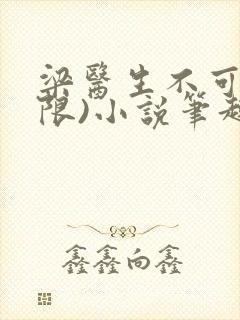 梁醫生不可
限)小說筆趣
鑫鑫向鑫